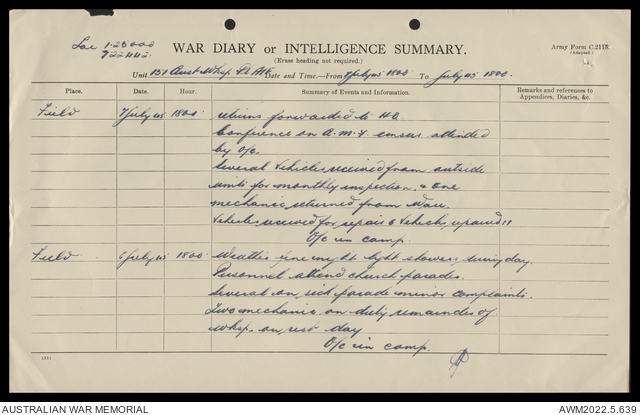 Loc 1-25000
WAR DIARY or INTELLIGENCE SUMMARY.
(Erase heading not required.)
Army Form C.2118.
(Adapted.)
Unit 151 Aust Wksp Date and Time—From July 45 1800 To July 45 1800.
Place. Date. Hour. Summary of Events and Information. Remarks and references to Appendices, Diaries, &c.
Field 7 July 45 1800 returns forwarded to HQ
Conference on A.M.F. census attended
by O/C.
Several Vehicles received from outside
units for monthly inspection. & one
mechanic returned from
Vehicles received for repair 6 Vehicles repaired 11
O/C in camp.
Field July 45 1800 Weather fine light showers during day.
Personnel attend church parades.
Several on sick parade minor complaints.
Two mechanics on duty remainder of
wksp. on rest day
O/C in camp.
AUSTRALIAN WAR MEMORIAL
AWM2022.5.639